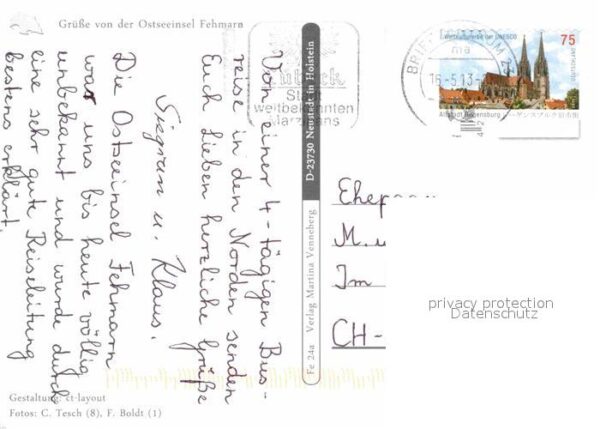 Grüße von der Ostseeinsel Fehmarn
Von einer 4-tägigen Bus-
reise in den Norden senden
Euch Lieben herzliche Grüße
Siegrun u. Klaus.
Die Ostseeinsel Fehmarn
war uns bis heute völlig
unbekannt und wurde durch
eine sehr gute Reiseleitung
bestens erklärt.
Gestaltung: ct-layout
Fotos: C. Tesch (8), F. Boldt (1)
Fe 24a Verlag Martina Venneberg
D-23730 Neustadt in Holstein
Stadt
weltbekannten
Marzipans
BRIEFZENTRUM
-5.13
UNESCO
75
Altstadt Regensburg
M.
Im
CH-
privacy protection
Datenschutz